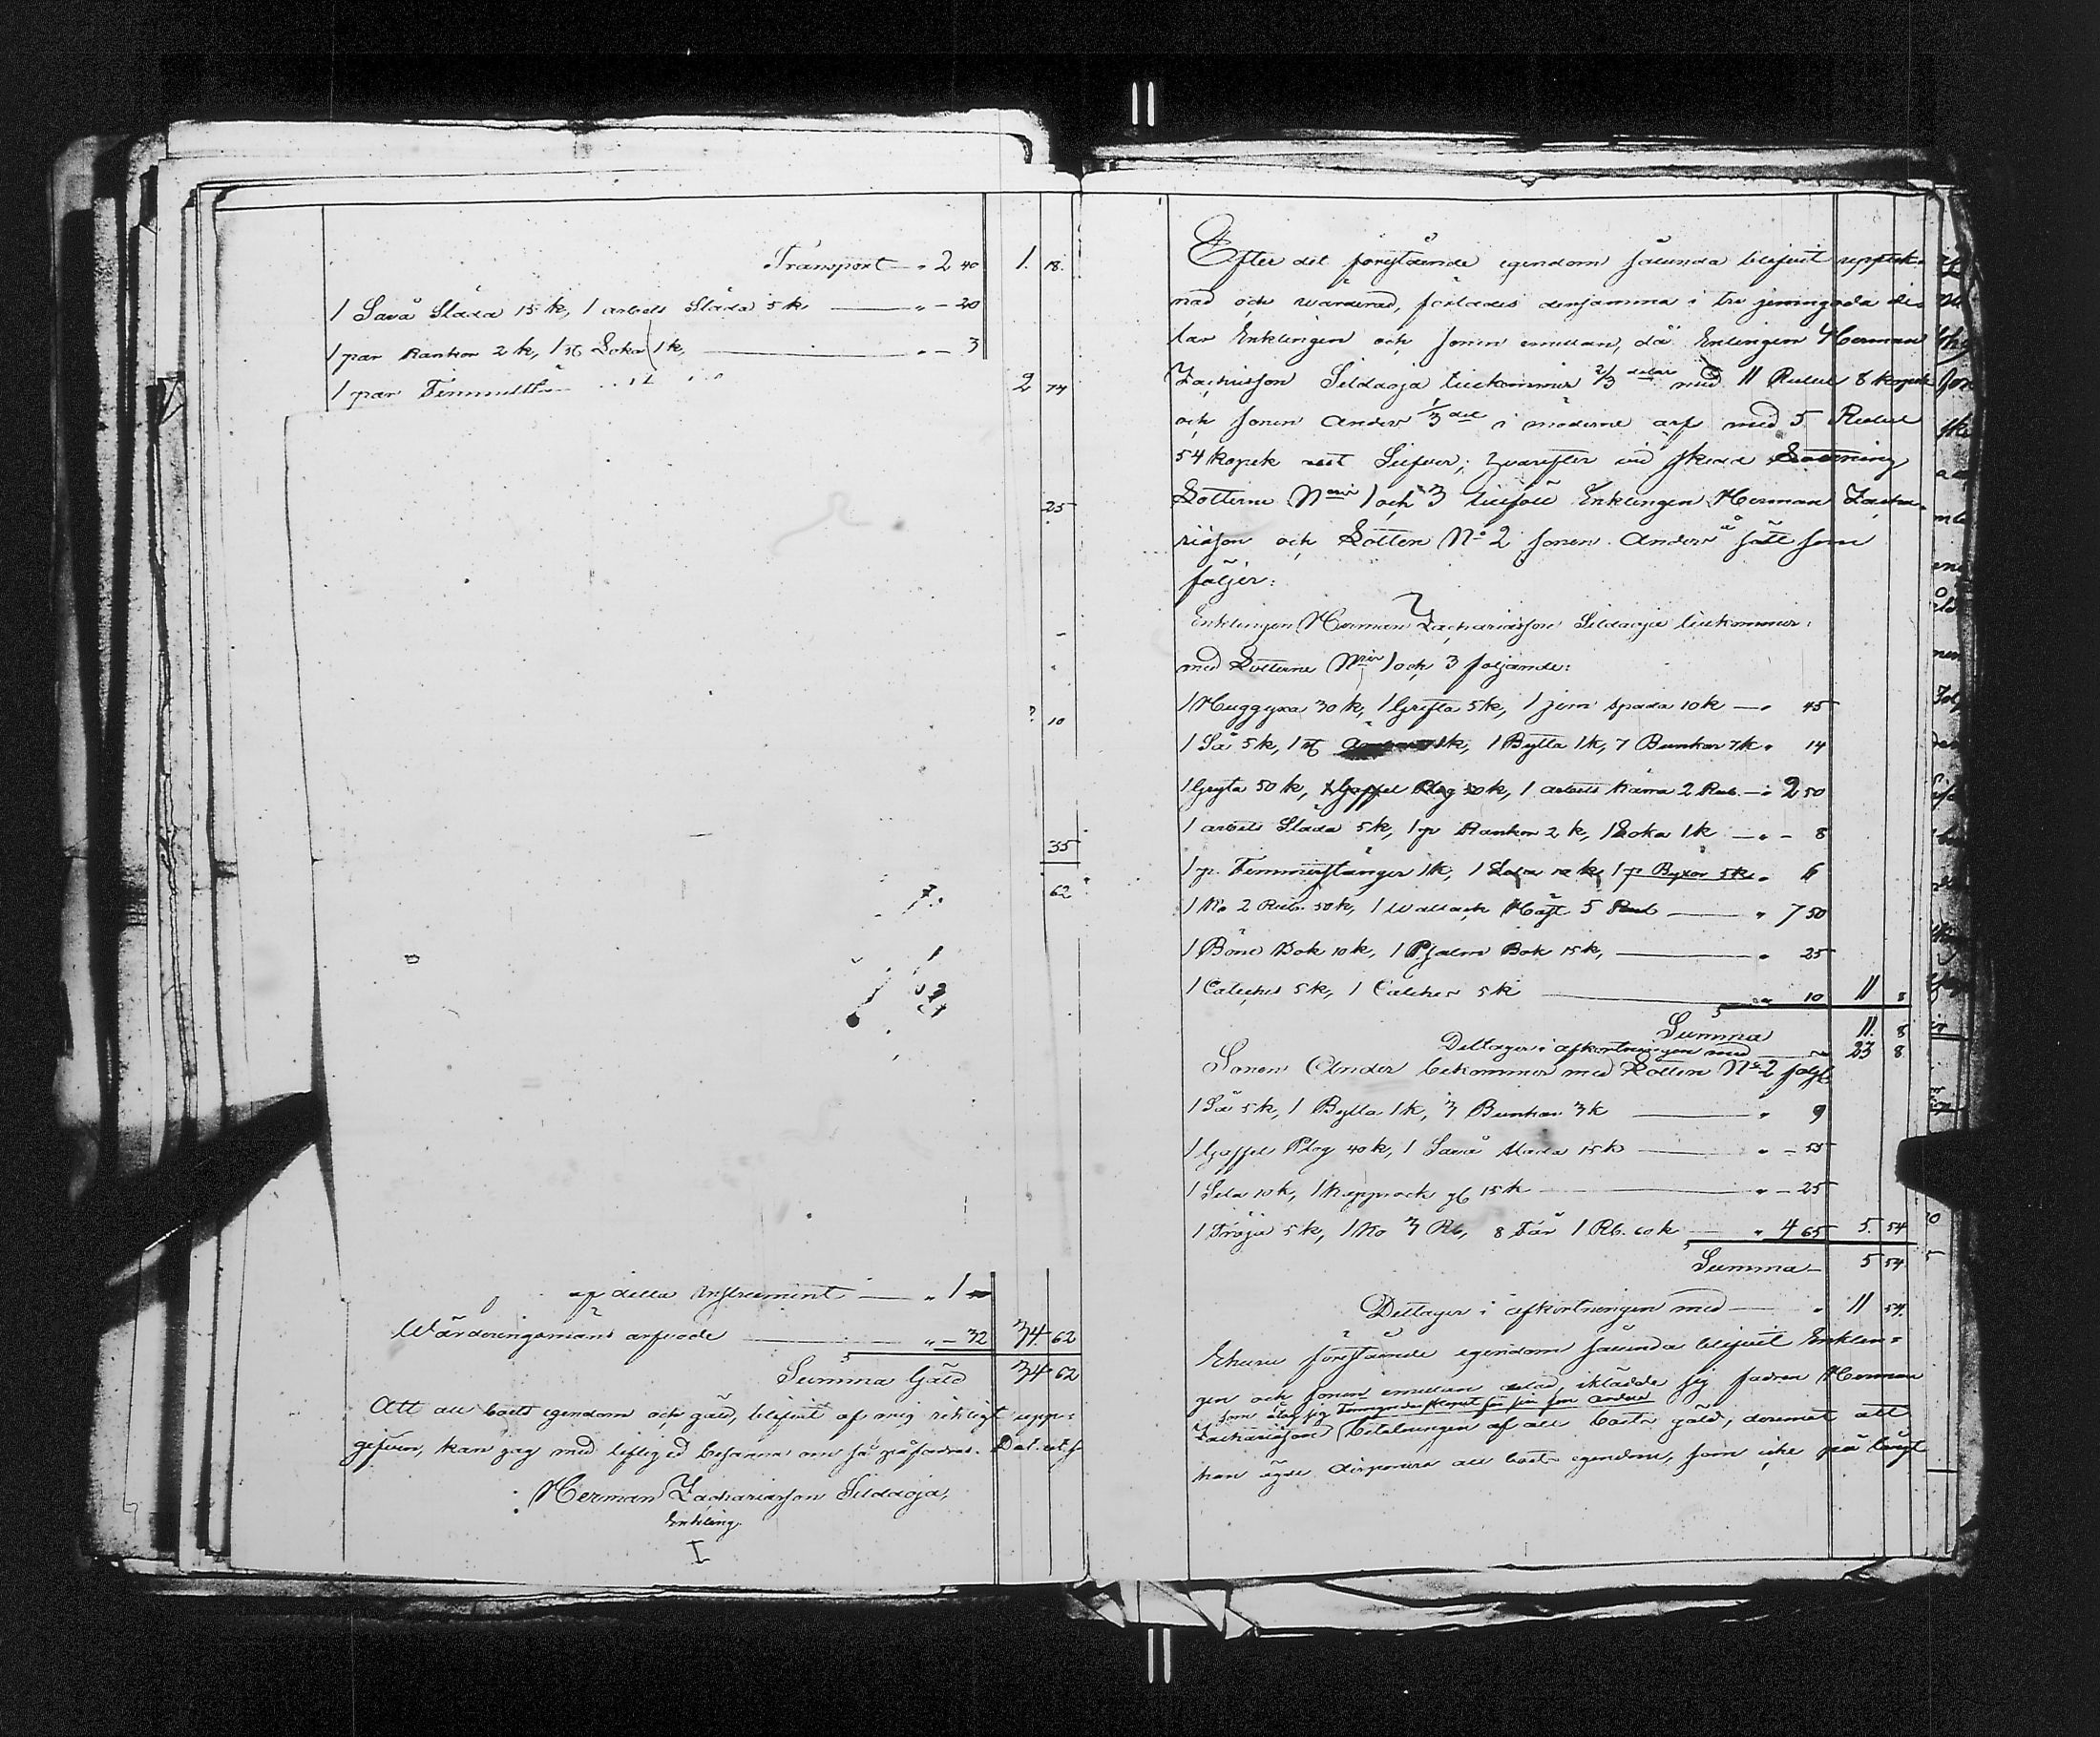 Transport — " 2 40 1. 18.
1 Savå Släda 15 k, 1 arbets Släda 5 k — " — 20
1 par Rankor 2 k, 1 st Loka 1 k, — " — 3
1 par 2 74
25
10
35
62
af detta Instrument — " 1 —
Wärderingsmäns arfvode — " — 32 34 62
Summa Gäld 34 62
Att all boets egendom och gäld, blifvit af mig riktigt uppgifven, kan jag med liflig ed besanna om så påfordras. Dat. ut. s
Herman Zachariasson Sildaoja,
Enkling.
Efter det förestående egendom sålunda blifvit upptek-
nad och wärderad, fördades densamma i tre jemngoda de-
lar Enklingen och Sonen emellan, då Enklingen Herman
Zachrisson Sildaoja tillkommer 2/3 delar med 11 Rubel 8 kopek
och Sonen Ander 1/3 del i möderne arf med 5 Rubel
54 kopek Silfver; hvarefter vid skedd Lottning
Lotterne N:ris 1 och 3 tillföll Enklingen Herman Zacha-
riasson och Lotten N:o 2 Sonen Ander å sätt som
följer:
Enklingen Herman Zachariasson Sildaoja tillkommer:
med Lotterne N:ris 1 och 3 följande:
1 Huggyxa 30 k, 1 Grefta 5 k, 1 jern spada 10 k — " 45
1 Så 5 k, 1 st 1 k, 1 Bytta 1 k, 7 Bunkar 7 k " 14
1 Gryta 50 k, 1 Gaffel Plog k, 1 arbets kärra 2 Rub. — " 2 50
1 arbets Släda 5 k, 1 pr Rankor 2 k, 1 Loka 1 k — " — 8
1 pr. Timmerstänger 1 k, 1 1 pr Byxor 5 k " 6
1 Ko 2 Rub. 50 k, 1 Wallack Häst 5 Rub — " 7 50
1 Böne Bok 10 k, 1 Psalm Bok 15 k, — " 25
1 Catches 5 k, 1 Catches 5 k — " 10 11 8
Summa 11. 8
Deltager i afkortningen med — 23 8.
Sonen Ander bekommer med Lotten N:o 2 följd
1 Så 5 k, 1 Bytta 1 k, 3 Bunkar 3 k — " 9
1 Gaffel Plog 40 k, 1 Savå släda 15 k — " — 55
1 Sela 10 k, 1 kapprock gl 15 k — " — 25
1 Tröja 5 k, 1 Ko 3 Rb, 8 Får 1 Rb. 60 k — " 4 65 5. 54
Summa — 5 54
Deltager i afkortningen med — " 11 54.
Ehuru förestående egendom sålunda blifvit Enklin-
gen och Sonen emellan delad, iklädde sig fadren Herman
som åtog sig
Zachariasson betalningen af all boets gäld, deremot att
han ägde disponera all boets egendom, som icke på långt